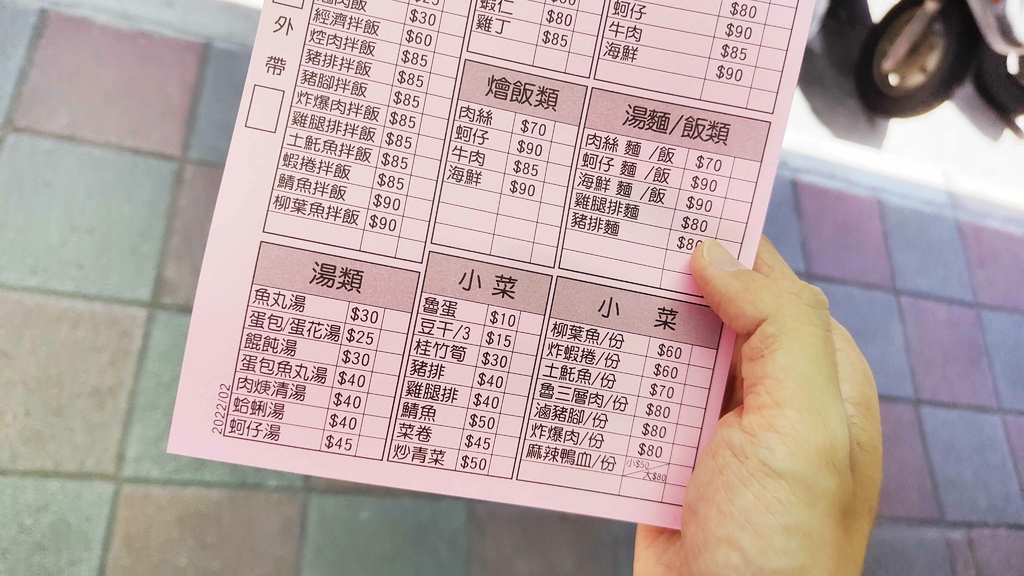 外
帶
$25
肉拌飯 $30
經濟拌飯 $60
焢肉拌飯 $85
豬排拌飯 $85
豬腳拌飯 $85
炸爆肉拌飯 $85
雞腿排拌飯 $85
土魠魚拌飯 $85
蝦捲拌飯 $85
鯖魚拌飯 $90
柳葉魚拌飯 $90
蝦仁 $80
雞丁 $85
$80
蚵仔 $90
牛肉 $85
海鮮 $90
燴飯類
肉絲 $70
蚵仔 $90
牛肉 $85
海鮮 $90
湯麵/飯類
肉絲 麵 /飯 $70
蚵仔 麵 /飯 $90
海鮮 麵 /飯 $90
雞腿排麵 $80
豬排麵 $80
湯類
魚丸湯 $30
蛋包/蛋花湯 $25
餛飩湯 $30
蛋包魚丸湯 $40
肉焿清湯 $40
蛤蜊湯 $40
蚵仔湯 $45
小菜
魯蛋 $10
豆干/3 $15
桂竹筍 $30
豬排 $40
雞腿排 $40
鯖魚 $50
菜卷 $45
炒青菜 $50
小 菜
柳葉魚/份 $60
炸蝦捲/份 $60
土魠魚/份 $70
魯三層肉/份 $80
滷豬腳/份 $80
炸爆肉/份 $80
麻辣鴨血/份 小$50
大$80
2022/02